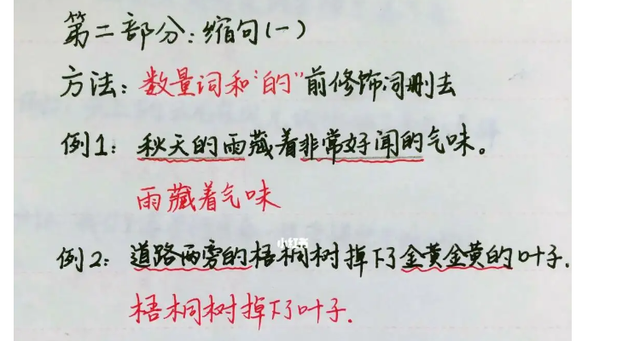 第二部分:缩句(一)
方法:数量词和"的"前修饰词删去
例1:秋天的雨藏着非常好闻的气味。
雨藏着气味
小红书
例2:道路两旁的梧桐树掉下了金黄金黄的叶子.
梧桐树掉下了叶子.